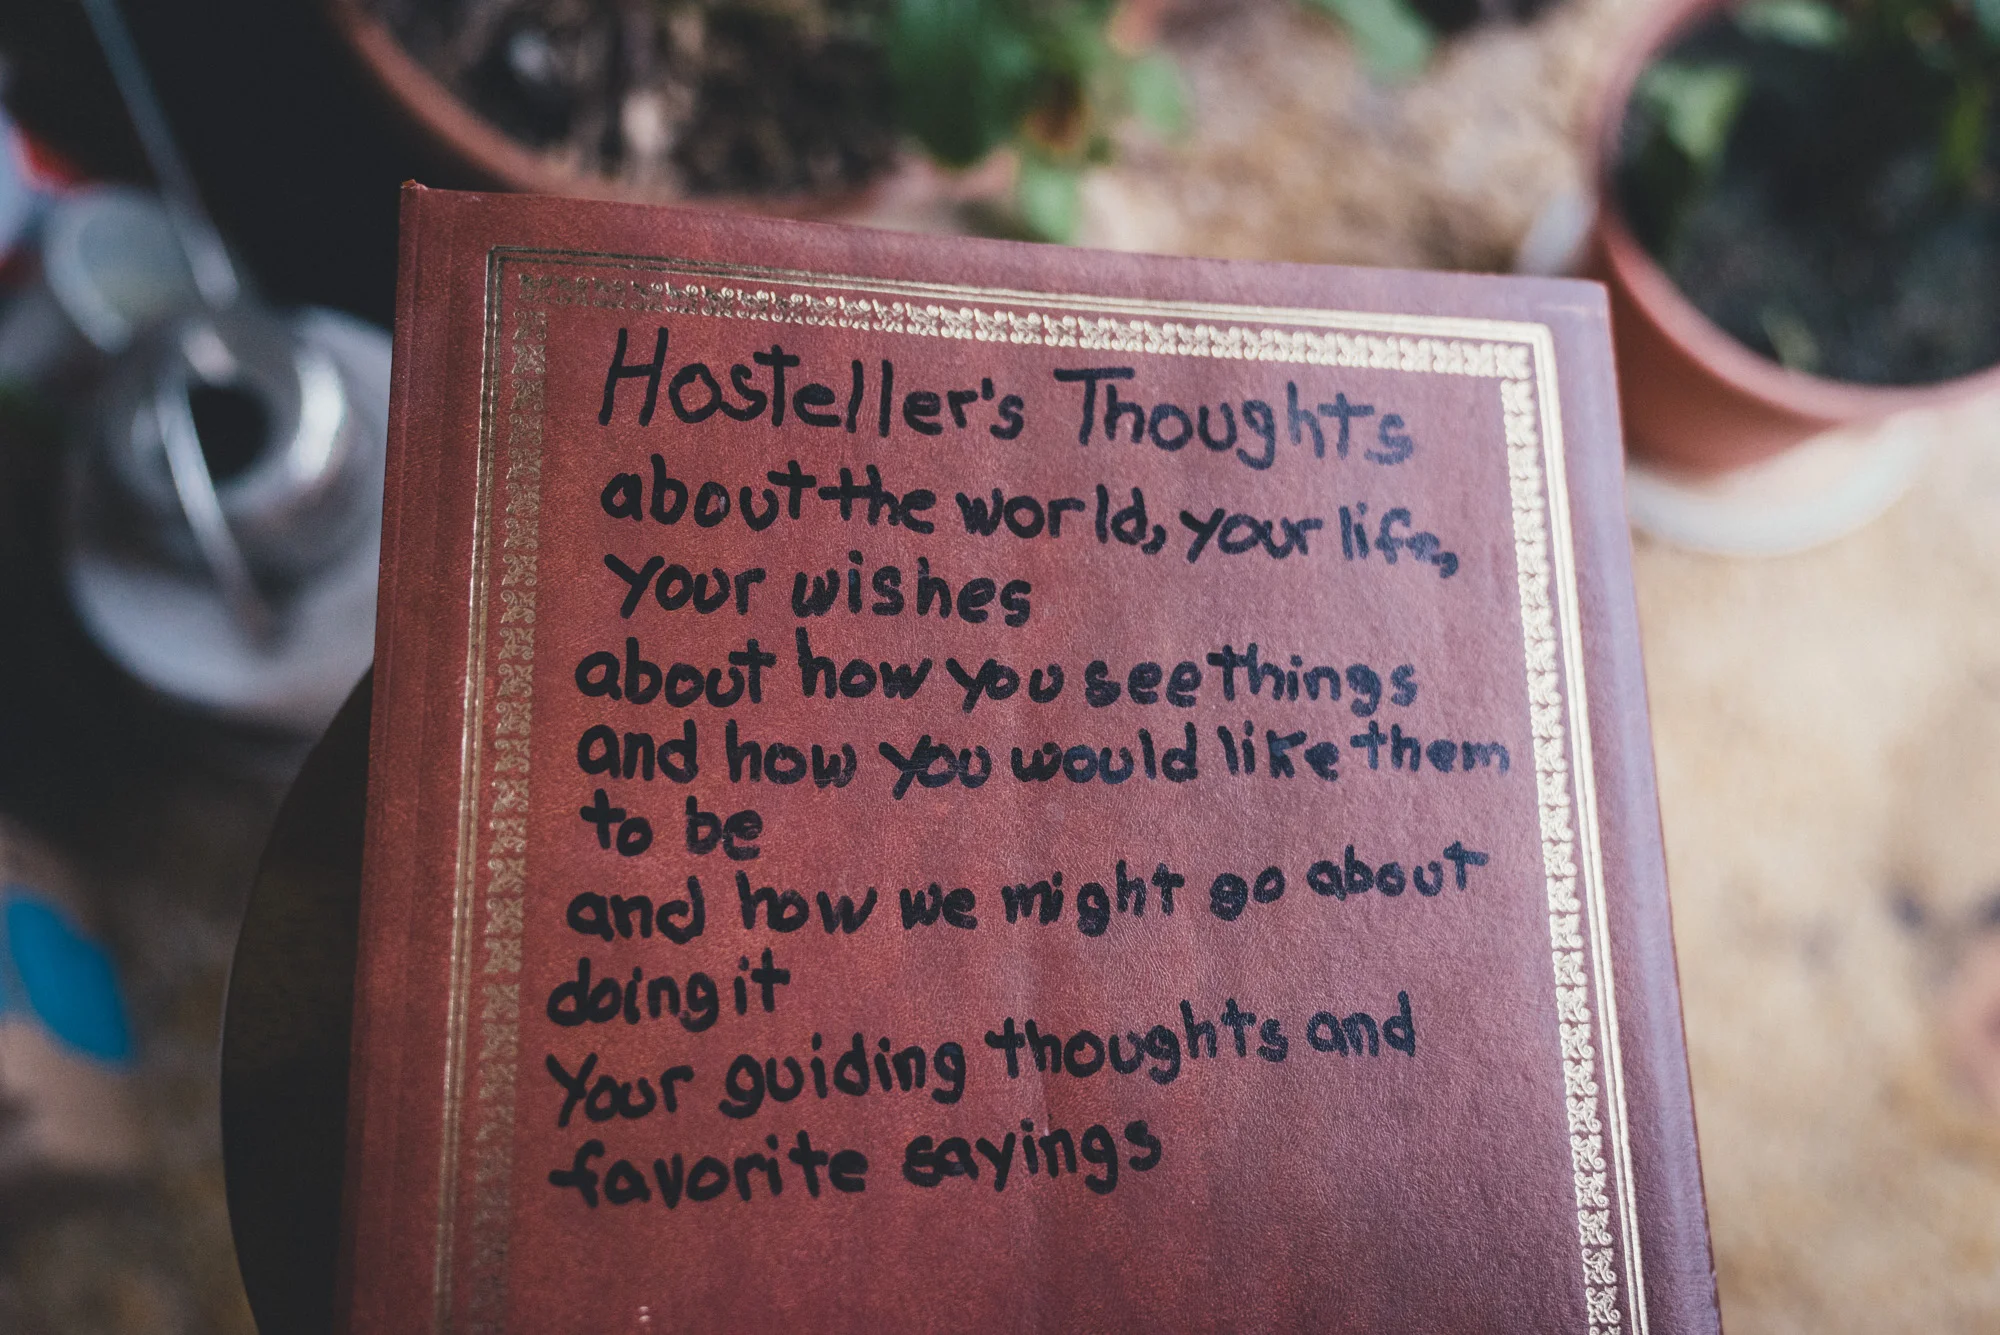 Hosteller's Thoughts
about the world, your life,
your wishes
about how you see things
and how you would like them
to be
and how we might go about
doing it
Your guiding thoughts and
favorite sayings